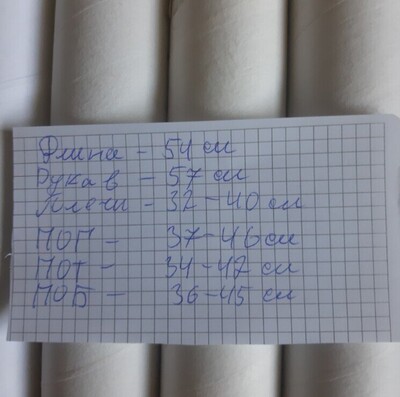 Длина - 54 см
Рукав - 57 см
Плечи - 32-40 см
ПОГ - 37-46 см
ПОТ - 34-42 см
ПОБ - 36-45 см